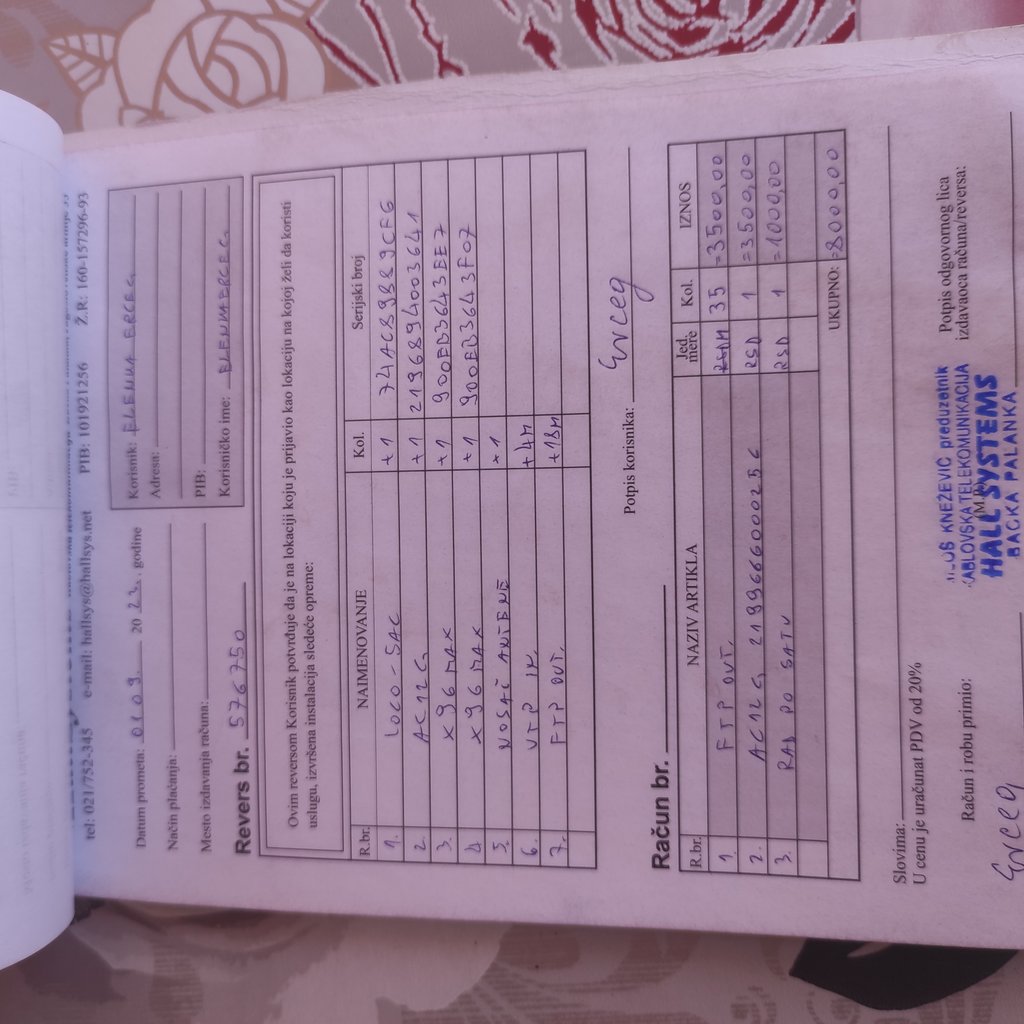 tel: 021/752-345 e-mail: hallsys@hallsys.net PIB: 101921256 Ž.R: 160-157296-93
Datum prometa: 01.09. 20 23. godine
Način plaćanja:
Mesto izdavanja računa:
Korisnik: ELENNA ERCEG
Adresa:
PIB:
Korisničko ime:
Revers br. 576750
Ovim reversom Korisnik potvrđuje da je na lokaciji koju je prijavio kao lokaciju na kojoj želi da koristi
uslugu, izvršena instalacija sledeće opreme:
R.br. NAIMENOVANJE Kol. Serijski broj
1. LOCO-5AC +1 74AC8989CF6
2. AC12G +1 2196894003641
3. X96 MAX +1 900EB3643EE7
4. X96 MAX +1 900EB3643F07
5. NOSAČ ANTENE +1
6. UTP IN. +4M
7. FTP OUT. +18M
Potpis korisnika: Erceg
Račun br.
R.br. NAZIV ARTIKLA Jed. mere Kol. IZNOS
1 FTP OUT. 35 =3500,00
2. AC12G 2199666000256 RSD 1 =3500,00
3. RAD PO SATU RSD 1 =1000,00
UKUPNO: =8000,00
Slovima:
U cenu je uračunat PDV od 20%
Račun i robu primio:
Erceg
KNEŽEVIĆ preduzetnik
KABLOVSKA TELEKOMUNIKACIJA
HALL SYSTEMS
BAČKA PALANKA
Potpis odgovornog lica
izdavaoca računa/reversa: